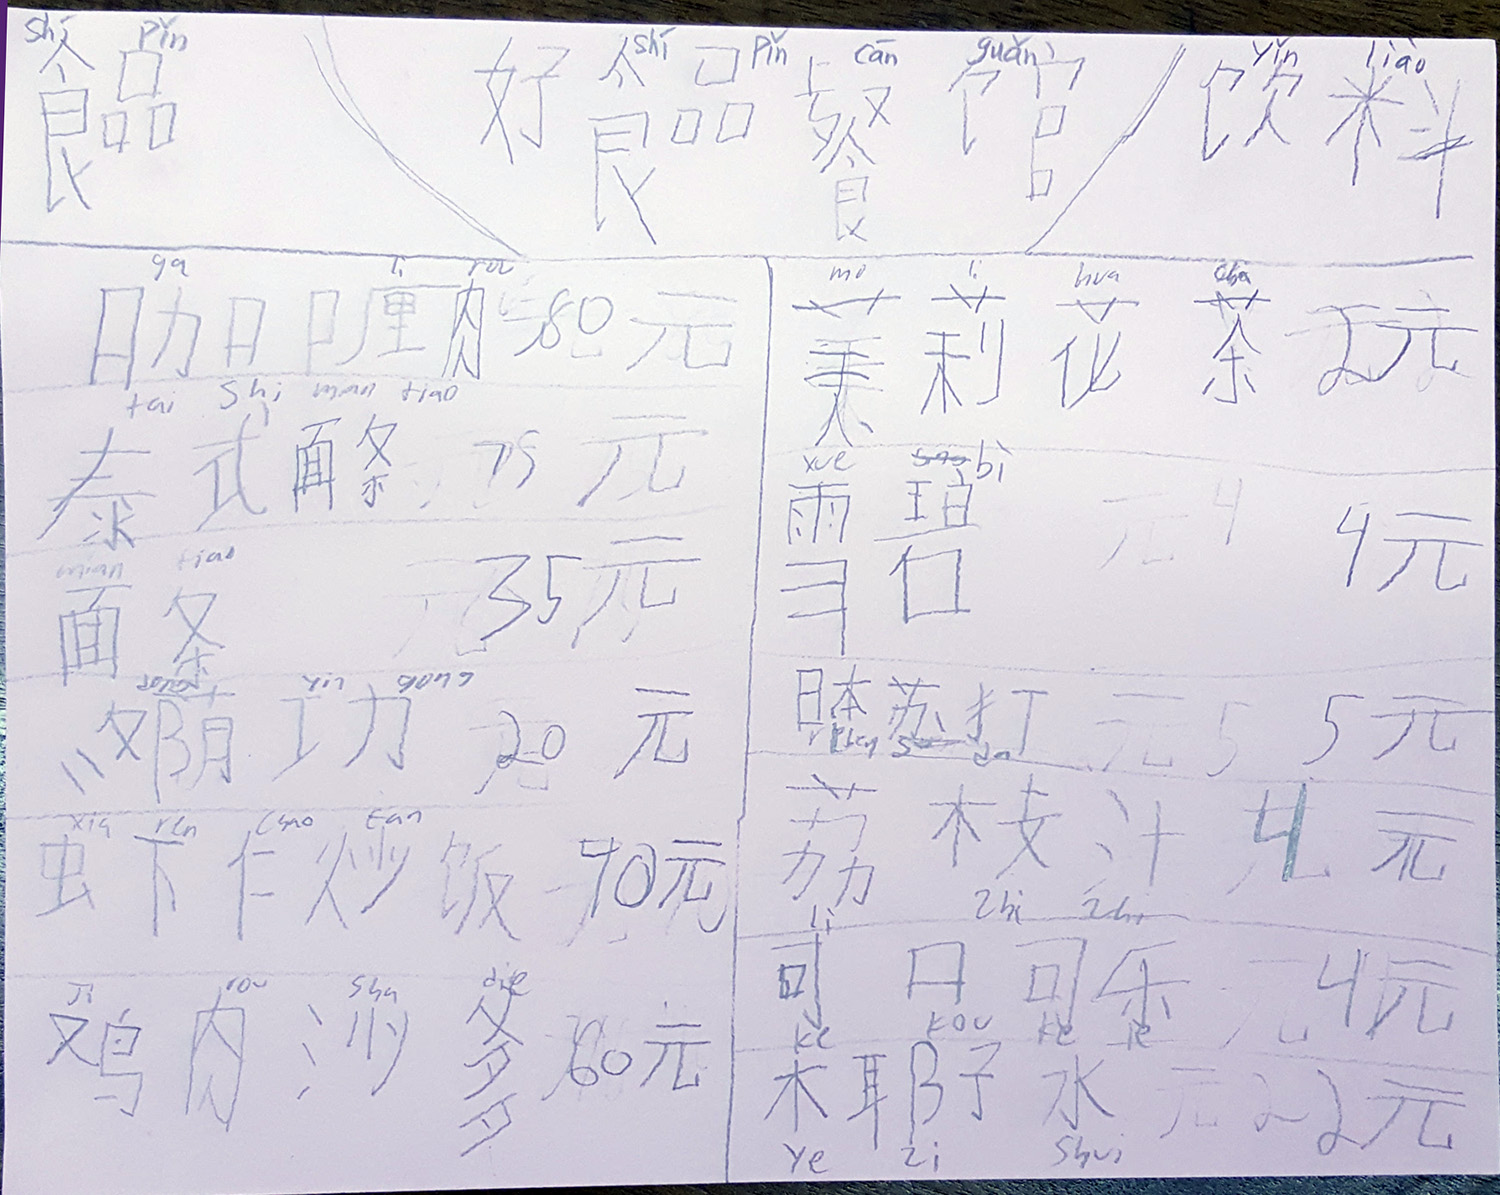 shí pǐn
食品
shí pǐn cān guǎn
好食品餐馆
yǐn liào
饮料
ga li rou
咖喱肉 80元
tai shi mian tiao
泰式面条 75元
mian tiao
面条 35元
20元
xia ren chao fan
虾仁炒饭 90元
Ji rou sha die
鸡肉沙爹 60元
mo li hua cha
茉莉花茶 2元
xue bi
雪碧 4元
日本苏打 5元
riben su da
荔枝汁 4元
li zhi zhi
可口可乐 4元
ke kou ke le
椰子水 2元
ye zi shui